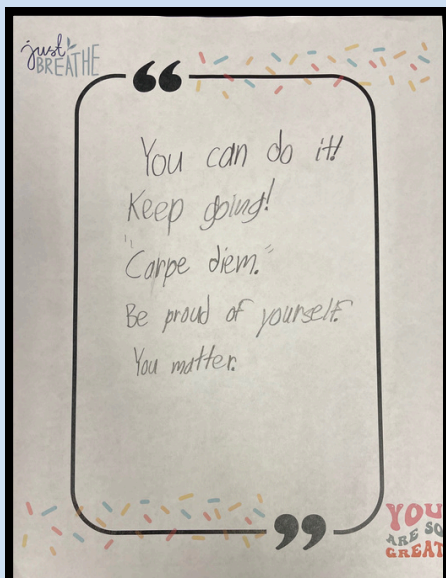 just
BREATHE
You can do it!
Keep going!
"Carpe diem."
Be proud of yourself.
You matter.
YOU
ARE SO
GREAT